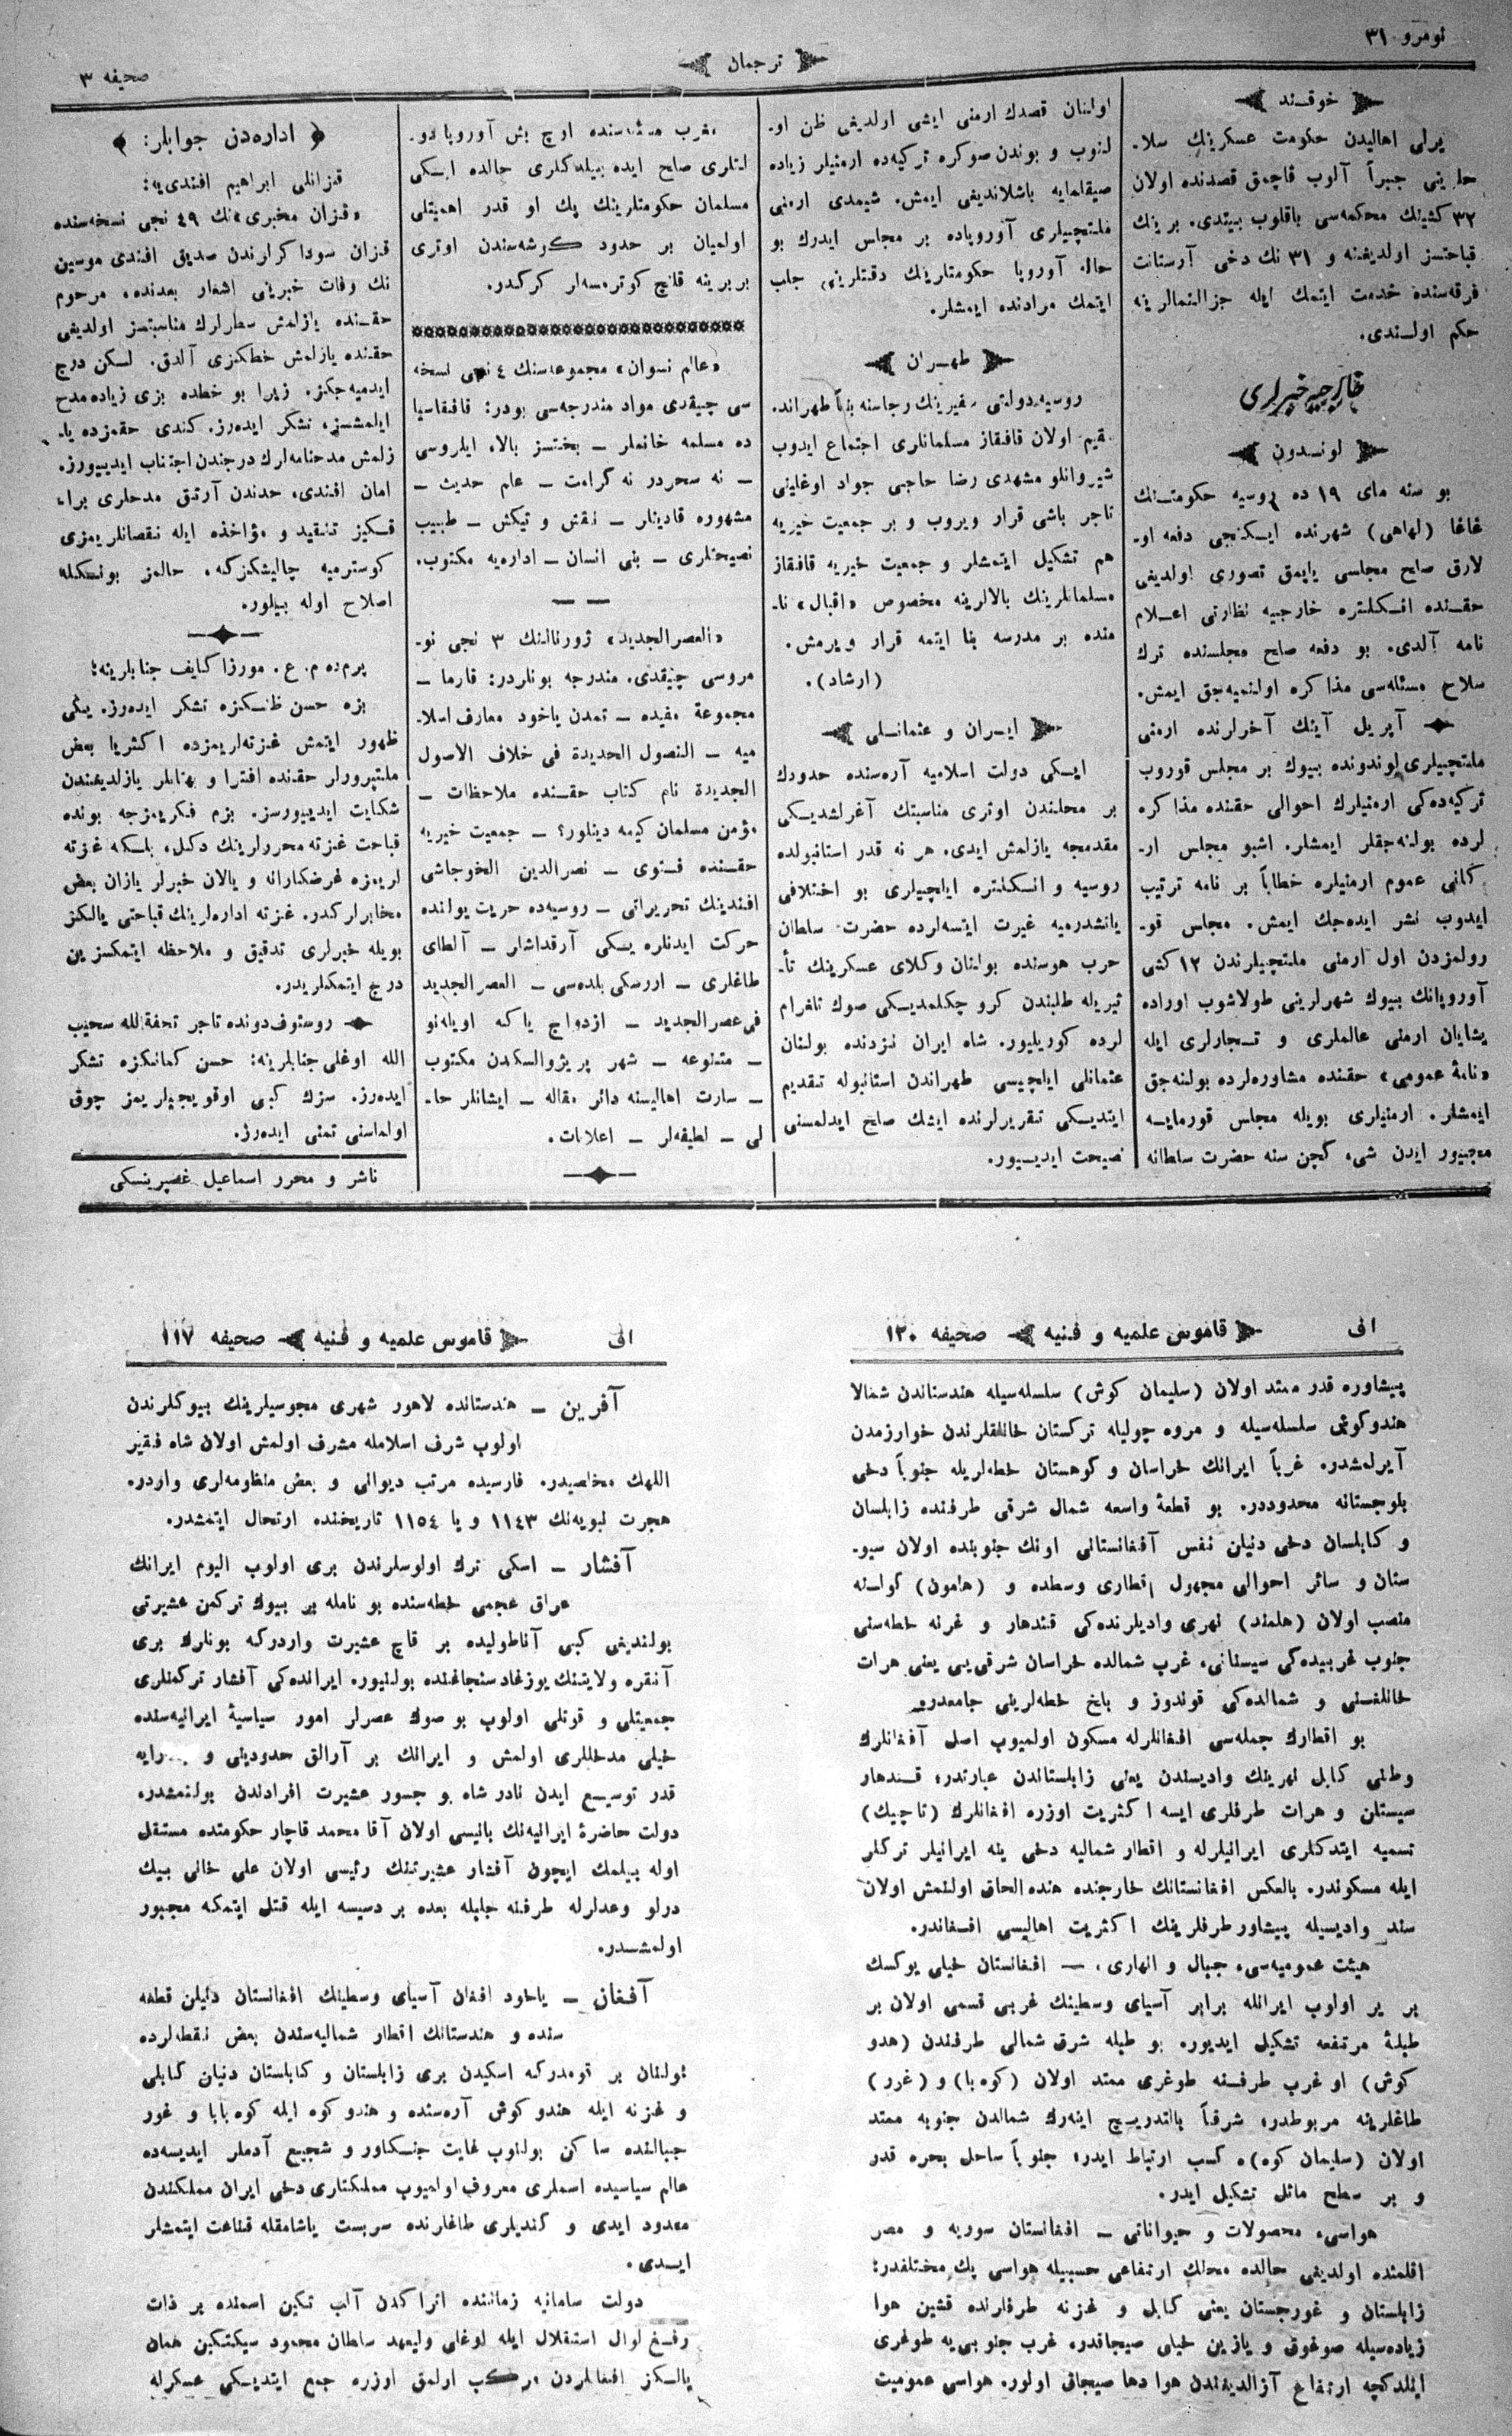 نومرو ۳۱
ترجمان
صحیفه ۳
خوقند
یرلی اهالیدن حکومت عسکرینك سلا-
حلرینی جبراً آلوب قاچمق قصدنده اولان
۳۲ کشینك محکمه‌سی باقلوب بیتدی. برینك
قباحتسز اولدیغنه و ۳۱ نك دخی آرستانت
فرقه‌سنده خدمت ایتمك ایله جزالنمالرینه
حکم اولندی.
خارجیه خبرلری
لوندون
بو سنه مای ۱۹ ده روسیه حکومتنك
غاغا (لاهای) شهرنده ایکنجی دفعه او-
لارق صلح مجلسی یاپمق تصوری اولدیغی
حقنده انکلتره خارجیه نظارتی اعلام
نامه آلدی. بو دفعه صلح مجلسنده ترك
سلاح مسئله‌سی مذاکره اولنمیه‌جق ایمش.
آپریل آینك آخرلرنده ارمنی
ملتچیلری لوندونده بیوك بر مجلس قوروب
ترکیه‌ده‌کی ارمنیلرك احوالی حقنده مذاکره
لرده بولنه‌جقلر ایمشلر. اشبو مجلس ار-
کانی عموم ارمنیلره خطاباً بر نامه ترتیب
ایدوب نشر ایده‌جك ایمش. مجلس قو-
رولمزدن اول ارمنی ملتچیلرندن ۱۲ کشی
آوروپانك بیوك شهرلرینی طولاشوب اوراده
یشایان ارمنی عالملری و تجارلری ایله
«نامهٔ عمومی» حقنده مشاوره‌لرده بولنه‌جق
ایمشلر. ارمنیلری بویله مجلس قورمایه
مجبور ایدن شی، کچن سنه حضرت سلطانه
اولنان قصدك ارمنی ایشی اولدیغی ظن او-
لنوب و بوندن صوکره ترکیه‌ده ارمنیلر زیاده
صیقلمایه باشلاندیغی ایمش. شیمدی ارمنی
ملتچیلری آوروپاده بر مجلس ایدرك بو
حاله آوروپا حکومتلرینك دقتلرینی جلب
ایتمك مرادنده ایمشلر.
طهران
روسیه دولتی سفیرینك رجاسنه بناً طهرانده
مقیم اولان قافقاز مسلمانلری اجتماع ایدوب
شیروانلو مشهدی رضا حاجی جواد اوغلینی
تاجر باشی قرار ویروب و بر جمعیت خیریه
هم تشکیل ایتمشلر و جمعیت خیریه قافقاز
مسلمانلرینك بالالرینه مخصوص «اقبال» نا-
منده بر مدرسه بنا ایتمه قرار ویرمش.
(ارشاد).
ایران و عثمانلی
ایکی دولت اسلامیه آره‌سنده حدودك
بر محلندن اوتری مناسبتك آغرلشدیکی
مقدمجه یازلمش ایدی. هر نه قدر استانبولده
روسیه و انکلتره ایلچیلری بو اختلافی
یاتشدرمیه غیرت ایتسه‌لرده حضرت سلطان
حرب هوسنده بولنان وکلای عسکرینك تأ-
ثیریله طلبندن کرو چکلمدیکی صوك تلغرام
لرده کوریلیور. شاه ایران نزدنده بولنان
عثمانلی ایلچیسی طهراندن استانبوله تقدیم
ایتدیکی تقریرلرنده ایشك صلح ایدلمسنی
نصیحت ایدیور.
مغرب مسئله‌سنده اوچ بش آوروپا دو-
لتلری صلح ایده بیلدکلری حالده ایکی
مسلمان حکومتلرینك پك او قدر اهمیتلی
اولمیان بر حدود کوشه‌سندن اوتری
بربرینه قلنج کوترمسه‌لر کرکدر.
«عالم نسوان» مجموعه‌سنك ٤ نجی نسخه
سی چیقدی مواد مندرجه‌سی بودر: قافقاسیا
ده مسلمه خانملر – بختسز بالا، ایلروسی
– نه سحردر نه کرامت – عام حدیث –
مشهوره قادینلر – نقش و تیکش – طبیب
نصیحتلری – بنی انسان – اداره‌یه مکتوب.
«العصر الجدید» ژورنالنك ۳ نجی نو-
مروسی چیقدی. مندرجه بونلردر: قارما –
مجموعهٔ مفیده – تمدن یاخود معارف اسلا-
میه – النصول الحدیدة فی خلاف الاصول
الجدیدة نام کتاب حقنده ملاحظات –
مؤمن مسلمان کیمه دینلور؟ – جمعیت خیریه
حقنده فتوی – نصرالدین الخوجاشی
افندینك تحریراتی – روسیه‌ده حریت یولنده
حرکت ایدنلره یکی آرقداشلر – آلطای
طاغلری – اورسکی بلده‌سی – العصر الجدید
فی عصر الجدید – ازدواج یاکه اویله‌نو
– متنوعه – شهر پریژوالسکدن مکتوب
– سارت اهالیسنه دائر مقاله – ایشانلر حا-
لی – لطیفه‌لر – اعلانات.
﴿ اداره‌دن جوابلر: ﴾
قزانلی ابراهیم افندی‌یه:
«قزان مخبری» نك ٤۹ نجی نسخه‌سنده
قزان سوداکرلرندن صدیق افندی موسین
نك وفات خبرینی اشعار بعدنده، مرحوم
حقنده یازلمش سطرلرك مناسبتسز اولدیغی
حقنده یازلمش خطکزی آلدق. لکن درج
ایدمیه‌جکز. زیرا بو خطده بزی زیاده مدح
ایلمشسز، تشکر ایده‌رز. کندی حقمزده یا-
زلمش مدحنامه‌لرك درجندن اجتناب ایدییورز.
امان افندی، حددن آرتق مدحلری برا-
قکیز تنقید و مؤاخذه ایله نقصانلریمزی
کوسترمیه چالیشکزکه، حالمز بونکله
اصلاح اوله بیلور.
پرم‌ده م. ع. مورزاکایف جنابلرینه:
بزه حسن ظنکزه تشکر ایده‌رز. یکی
ظهور ایتمش غزته‌لریمزده اکثریا بعض
ملتپرورلر حقنده افترا و بهتانلر یازلدیغندن
شکایت ایدییورسز. بزم فکریمزجه بونده
قباحت غزته محررلرینك دکل، بلکه غزته
لریمزه غرضکارانه و یالان خبرلر یازان بعض
مخابرلرکدر. غزته اداره‌لرینك قباحتی یالکز
بویله خبرلری تدقیق و ملاحظه ایتمکسزین
درج ایتمکلریدر.
روستوف دونده تاجر تحفة الله سحیب
الله اوغلی جنابلرینه: حسن کمانکزه تشکر
ایده‌رز. سزك کبی اوقویجیلریمز چوق
اولماسنی تمنی ایده‌رز.
ناشر و محرر اسماعیل غصپرینسکی
افی
قاموس علمیه و فنیه
صحیفه ۱۲۰
پیشاوره قدر ممتد اولان (سلیمان کوش) سلسله‌سیله هندستاندن شمالا
هندوکوش سلسله‌سیله و مروه چولیله ترکستان خانلقلرندن خوارزمدن
آیرلمشدر. غرباً ایرانك خراسان و کوهستان خطه‌لریله جنوباً دخی
بلوجستانه محدوددر. بو قطعهٔ واسعه شمال شرقی طرفنده زابلسان
و کابلسان دخی دنیلن نفس آفغانستانی اونك جنوبنده اولان سیو-
ستان و سائر احوالی مجهول اقطاری وسطده و (هامون) کولنه
منصب اولان (هلمند) نهری وادیلرنده‌کی قندهار و غزنه خطه‌سنی
جنوب غربیده‌کی سیستانی، غرب شمالده خراسان شرقی‌یی یعنی هرات
خانلغنی و شمالده‌کی قوندوز و بلخ خطه‌لرینی جامعدر.
بو اقطارك جمله‌سی افغانلرله مسکون اولمیوب اصل آفغانلرك
وطنی کابل نهرینك وادیسندن یعنی زابلستاندن عبارتدر، قندهار
سیستان و هرات طرفلری ایسه اکثریت اوزره افغانلرك (تاجیك)
تسمیه ایتدکلری ایرانیلرله و اقطار شمالیه دخی ینه ایرانیلر ترکلر
ایله مسکوندر. بالعکس افغانستانك خارجنده هنده الحاق اولنمش اولان
سند وادیسیله پیشاور طرفلرینك اکثریت اهالیسی افغاندر.
هیئت عمومیه‌سی، جبال و انهاری. – افغانستان خیلی یوکسك
بر یر اولوب ایرانله برابر آسیای وسطینك غربی قسمی اولان بر
طبلهٔ مرتفعه تشکیل ایدیور. بو طبله شرق شمالی طرفندن (هندو
کوش) او غرب طرفنه طوغری ممتد اولان (کوه بابا) و (غور)
طاغلرینه مربوطدر، شرقاً بالتدریج اینه‌رك شمالدن جنوبه ممتد
اولان (سلیمان کوه)ه کسب ارتباط ایدر، جنوباً ساحل بحره قدر
و بر سطح مائل تشکیل ایدر.
هواسی، محصولات و حیواناتی – افغانستان سوریه و مصر
اقلمنده اولدیغی حالده محلك ارتفاعی حسبیله هواسی پك مختلفدر:
زابلستان و غورجستان یعنی کابل و غزنه طرفلرنده قشین هوا
زیاده‌سیله صوغوق و یازین خیلی صیجاقدر، غرب جنوبی‌یه طوغری
اینلدکچه ارتفاع آزالدیغندن هوا دها صیجاق اولور. هواسی عمومیت
افی
قاموس علمیه و فنیه
صحیفه ۱۱۷
آفرین – هندستانده لاهور شهری مجوسیلرینك بیوکلرندن
اولوب شرف اسلامله مشرف اولمش اولان شاه فقیر
اللهك مخلصیدر. فارسیده مرتب دیوانی و بعض منظومه‌لری واردر.
هجرت نبویه‌نك ۱۱٤۳ و یا ۱۱٥٤ تاریخنده ارتحال ایتمشدر.
آفشار – اسکی ترك اولوسلرندن بری اولوب الیوم ایرانك
عراق عجمی خطه‌سنده بو نامله بر بیوك ترکمن عشیرتی
بولندیغی کبی آناطولیده بر قاچ عشیرت واردرکه بونلرك بری
آنقره ولایتنك یوزغاد سنجاغنده بولنیور. ایرانده‌کی آفشار ترکمنلری
جمعیتلی و قوتلی اولوب بو صوك عصرلر امور سیاسیهٔ ایرانیه‌سنده
خیلی مدخللری اولمش و ایرانك بر آرالق حدودینی و
قدر توسیع ایدن نادر شاه بو جسور عشیرت افرادندن بولنمشدر.
دولت حاضرهٔ ایرانیه‌نك بانیسی اولان آقا محمد قاچار حکومتده مستقل
اوله بیلمك ایچون آفشار عشیرتینك رئیسی اولان علی خانی بیك
درلو وعدلرله طرفنه جلبله بعده بر دسیسه ایله قتل ایتمکه مجبور
اولمشدر.
آفغان – یاخود افغان آسیای وسطینك افغانستان دنیلن قطعه
سنده و هندستانك اقطار شمالیه‌سندن بعض نقطه‌لرده
بولنان بر قومدرکه اسکیدن بری زابلستان و کابلستان دنیلن کابلی
و غزنه ایله هندوکوش آره‌سنده و هندو کوه ایله کوه بابا و غور
جبالنده ساکن بولنوب غایت جنکاور و شجیع آدملر ایدیسه‌ده
عالم سیاسیده اسملری معروف اولمیوب مملکتلری دخی ایران مملکتندن
معدود ایدی و کندیلری طاغلرنده سربست یاشامقله قناعت ایتمشلر
ایدی.
دولت سامانیه زماننده اتراکدن آلب تکین اسمنده بر ذات
رفع لوای استقلال ایله اوغلی ولیعهد سلطان محمود سبکتکین همان
یالکز افغانلردن مرکب اولمق اوزره جمع ایتدیکی عسکرله